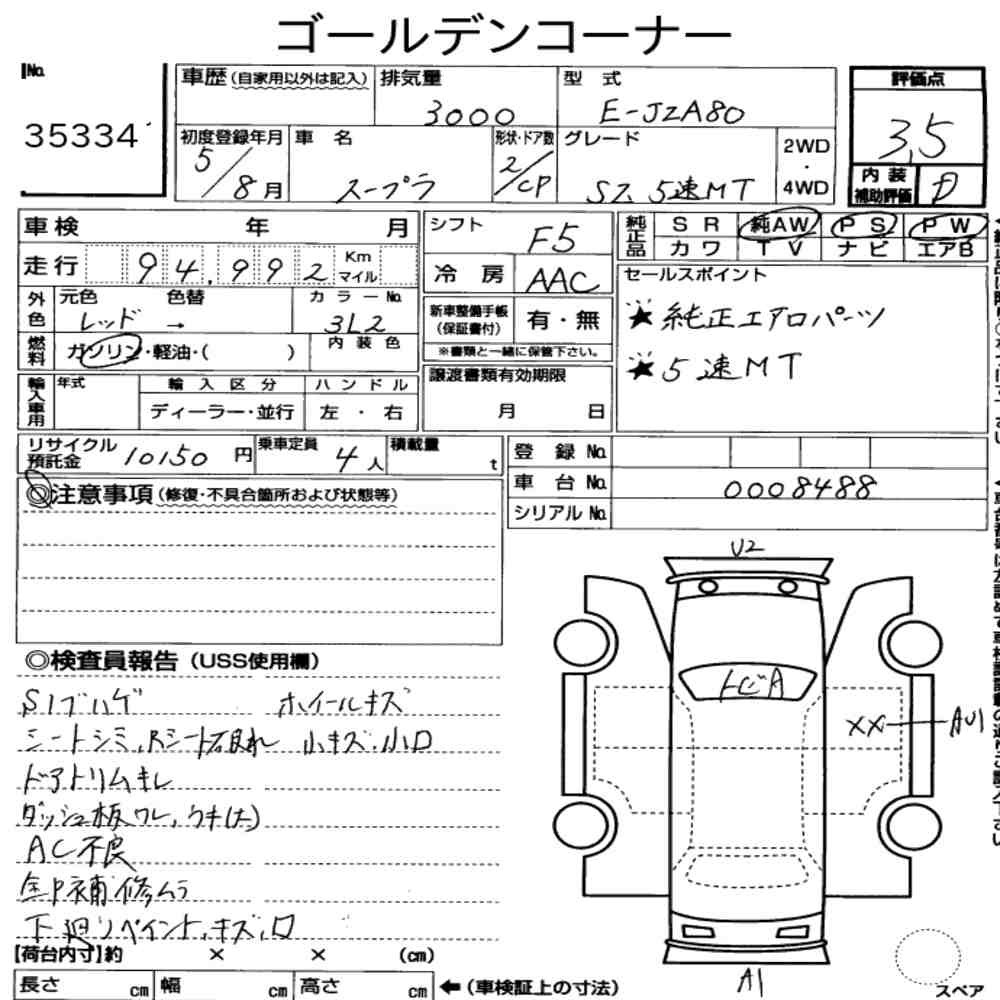 ゴールデンコーナー
No.
35334
車歴(自家用以外は記入)
排気量
3000
型 式
E-JZA80
評価点
3.5
初度登録年月
5/8月
車 名
スープラ
形状・ドア数
2/CP
グレード
SZ 5速MT
2WD
・
4WD
内 装
補助評価
D
車検 年 月
シフト
F5
純正品
SR 純AW PS PW
カワ TV ナビ エアB
走行
94,992
Km
マイル
冷 房
AAC
セールスポイント
外色
元色 色替
レッド →
カラーNo.
3L2
新車整備手帳
(保証書付)
有・無
※書類と一緒に保管下さい。
★純正エアロパーツ
★5速MT
燃料
ガソリン・軽油・( )
内 装 色
輸入車用
年式
輸 入 区 分
ハ ン ド ル
ディーラー・並行
左 ・ 右
譲渡書類有効期限
月 日
リサイクル
預託金
10150円
乗車定員
4人
積載量
t
登 録 No.
車 台 No.
0008488
シリアル No.
◎注意事項(修復・不具合箇所および状態等)
◎検査員報告(USS使用欄)
S1ブハゲ ホイールキズ
シートシミ、Rシート破れ 小キズ、小凹
ドアトリムキレ
ダッシュ板ワレ、ウキ(大)
AC不良
全P補修ムラ
下廻リペイント、キズ、凹
U2
トビA
XX
AU1
A1
スペア
【荷台内寸】約 × × (cm)
長さ cm 幅 cm 高さ cm ←(車検証上の寸法)